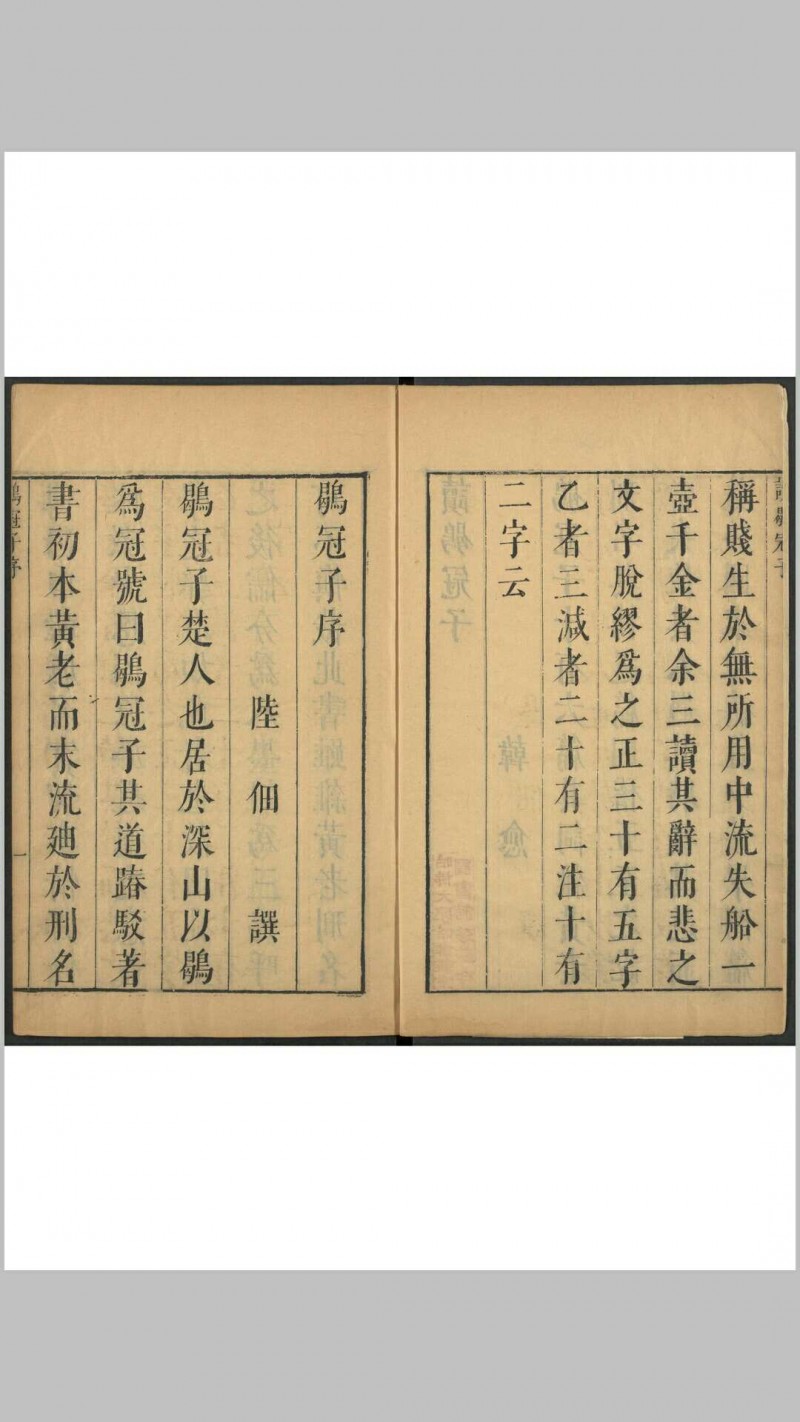 稱賤生於無所用中流失船一
壺千金者余三讀其辭而悲之
文字脫繆爲之正三十有五字
乙者三減者二十有二注十有
二字云
鶡冠子序
陸佃譔
鶡冠子楚人也居於深山以鶡
爲冠號曰鶡冠子其道踳駁著
書初本黃老而末流廸於刑名
鶡冠子序
一